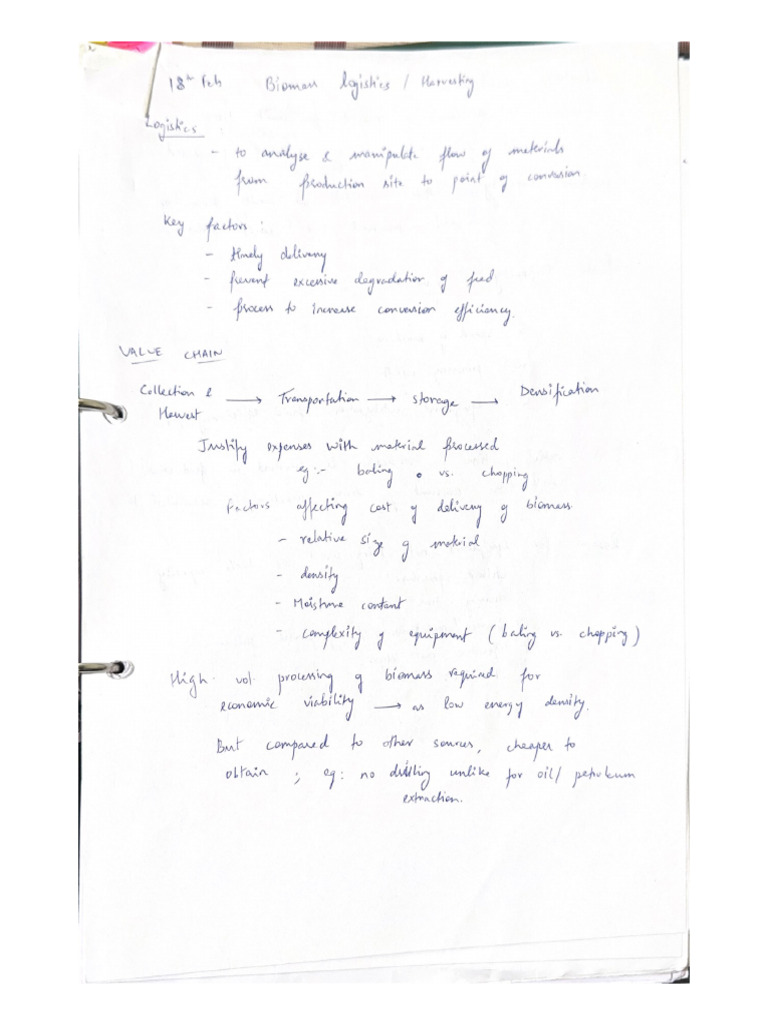 18th Feb Biomass logistics / Harvesting
Logistics
- to analyse & manipulate flow of materials
from production site to point of conversion.
Key factors :
- timely delivery
- prevent excessive degradation of feed
- process to increase conversion efficiency.
VALUE CHAIN
Collection & Harvest → Transportation → storage → Densification
Justify expenses with material processed
eg :- baling vs. chopping
factors affecting cost of delivery of biomass
- relative size of material
- density
- Moisture content
- complexity of equipment (baling vs. chopping)
High vol. processing of biomass required for
economic viability → as low energy density.
But compared to other sources, cheaper to
obtain ; eg: no drilling unlike for oil/ petroleum
extraction.